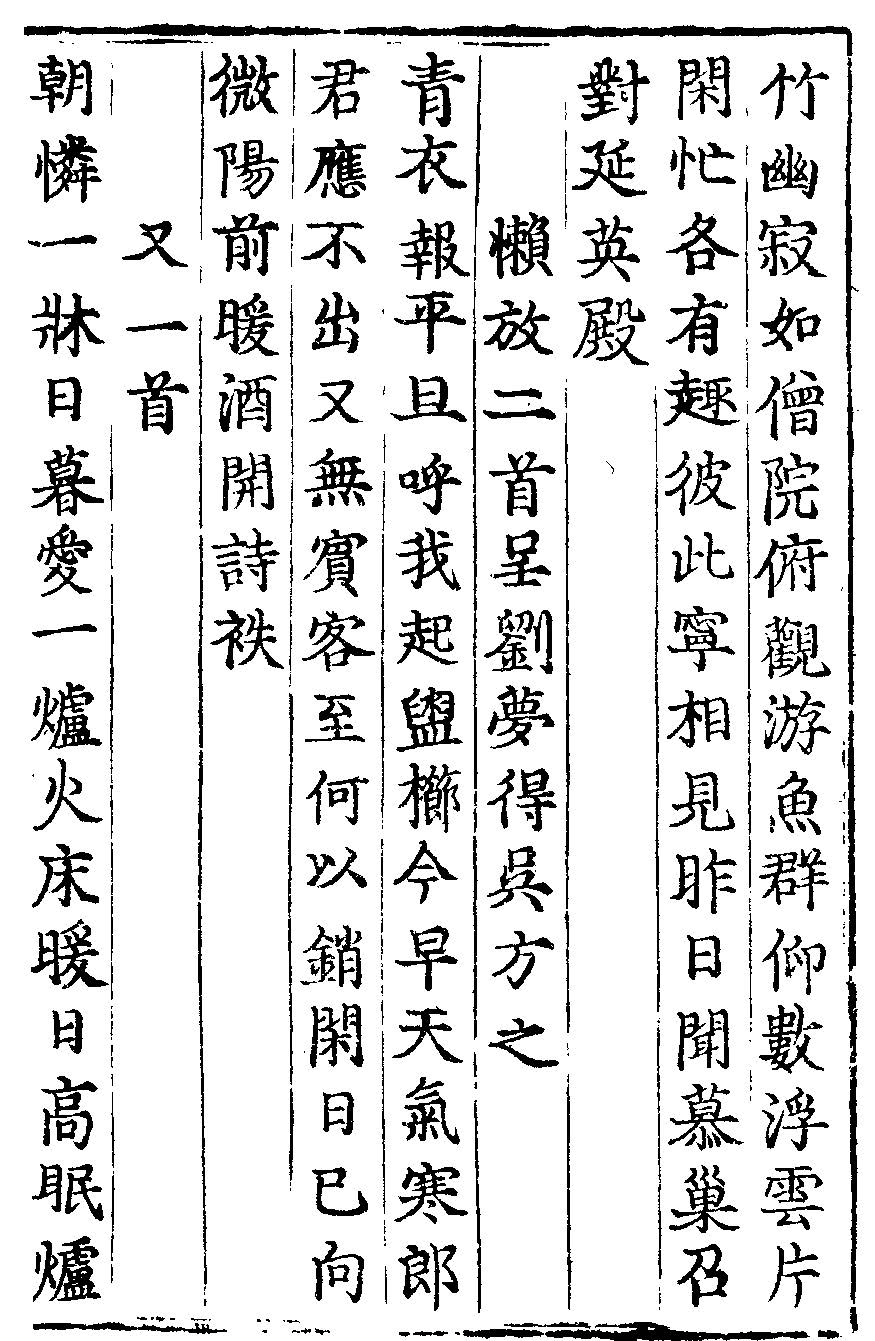 竹幽寂如僧院俯觀游魚群仰數浮雲片
閑忙各有趣彼此寧相見昨日聞慕巢召
對延英殿
懶放二首呈劉夢得吳方之
青衣報平旦呼我起盥櫛今早天氣寒郎
君應不出又無賓客至何以銷閑日已向
微陽前暖酒開詩袟
又一首
朝憐一牀日暮愛一爐火床暖日高眠爐